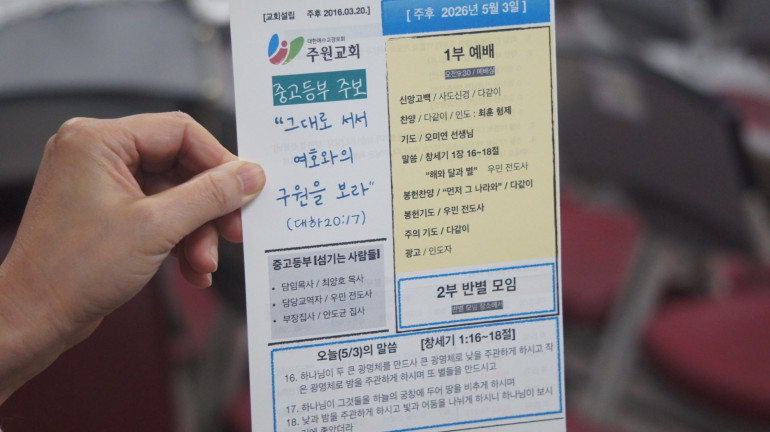 [교회설립 주후 2016.03.20.]
[ 주후 2026년 5월 3일 ]
대한예수교장로회
주원교회
중고등부 주보
“그대로 서서
여호와의
구원을 보라”
(대하20:17)
중고등부 [섬기는 사람들]
• 담임목사 / 최양호 목사
• 담당교역자 / 우민 전도사
• 부장집사 / 안도균 집사
1부 예배
오전9:30 / 예배실
신앙고백 / 사도신경 / 다같이
찬양 / 다같이 / 인도 : 최훈 형제
기도 / 오미연 선생님
말씀 / 창세기 1장 16~18절
“해와 달과 별” 우민 전도사
봉헌찬양 / “먼저 그 나라와” / 다같이
봉헌기도 / 우민 전도사
주의 기도 / 다같이
광고 / 인도자
2부 반별 모임
반별 모임 장소에서
오늘(5/3)의 말씀 [창세기 1:16~18절]
16. 하나님이 두 큰 광명체를 만드사 큰 광명체로 낮을 주관하게 하시고 작
은 광명체로 밤을 주관하게 하시며 또 별들을 만드시고
17. 하나님이 그것들을 하늘의 궁창에 두어 땅을 비추게 하시며
18. 낮과 밤을 주관하게 하시고 빛과 어둠을 나뉘게 하시니 하나님이 보시
기에 좋았더라